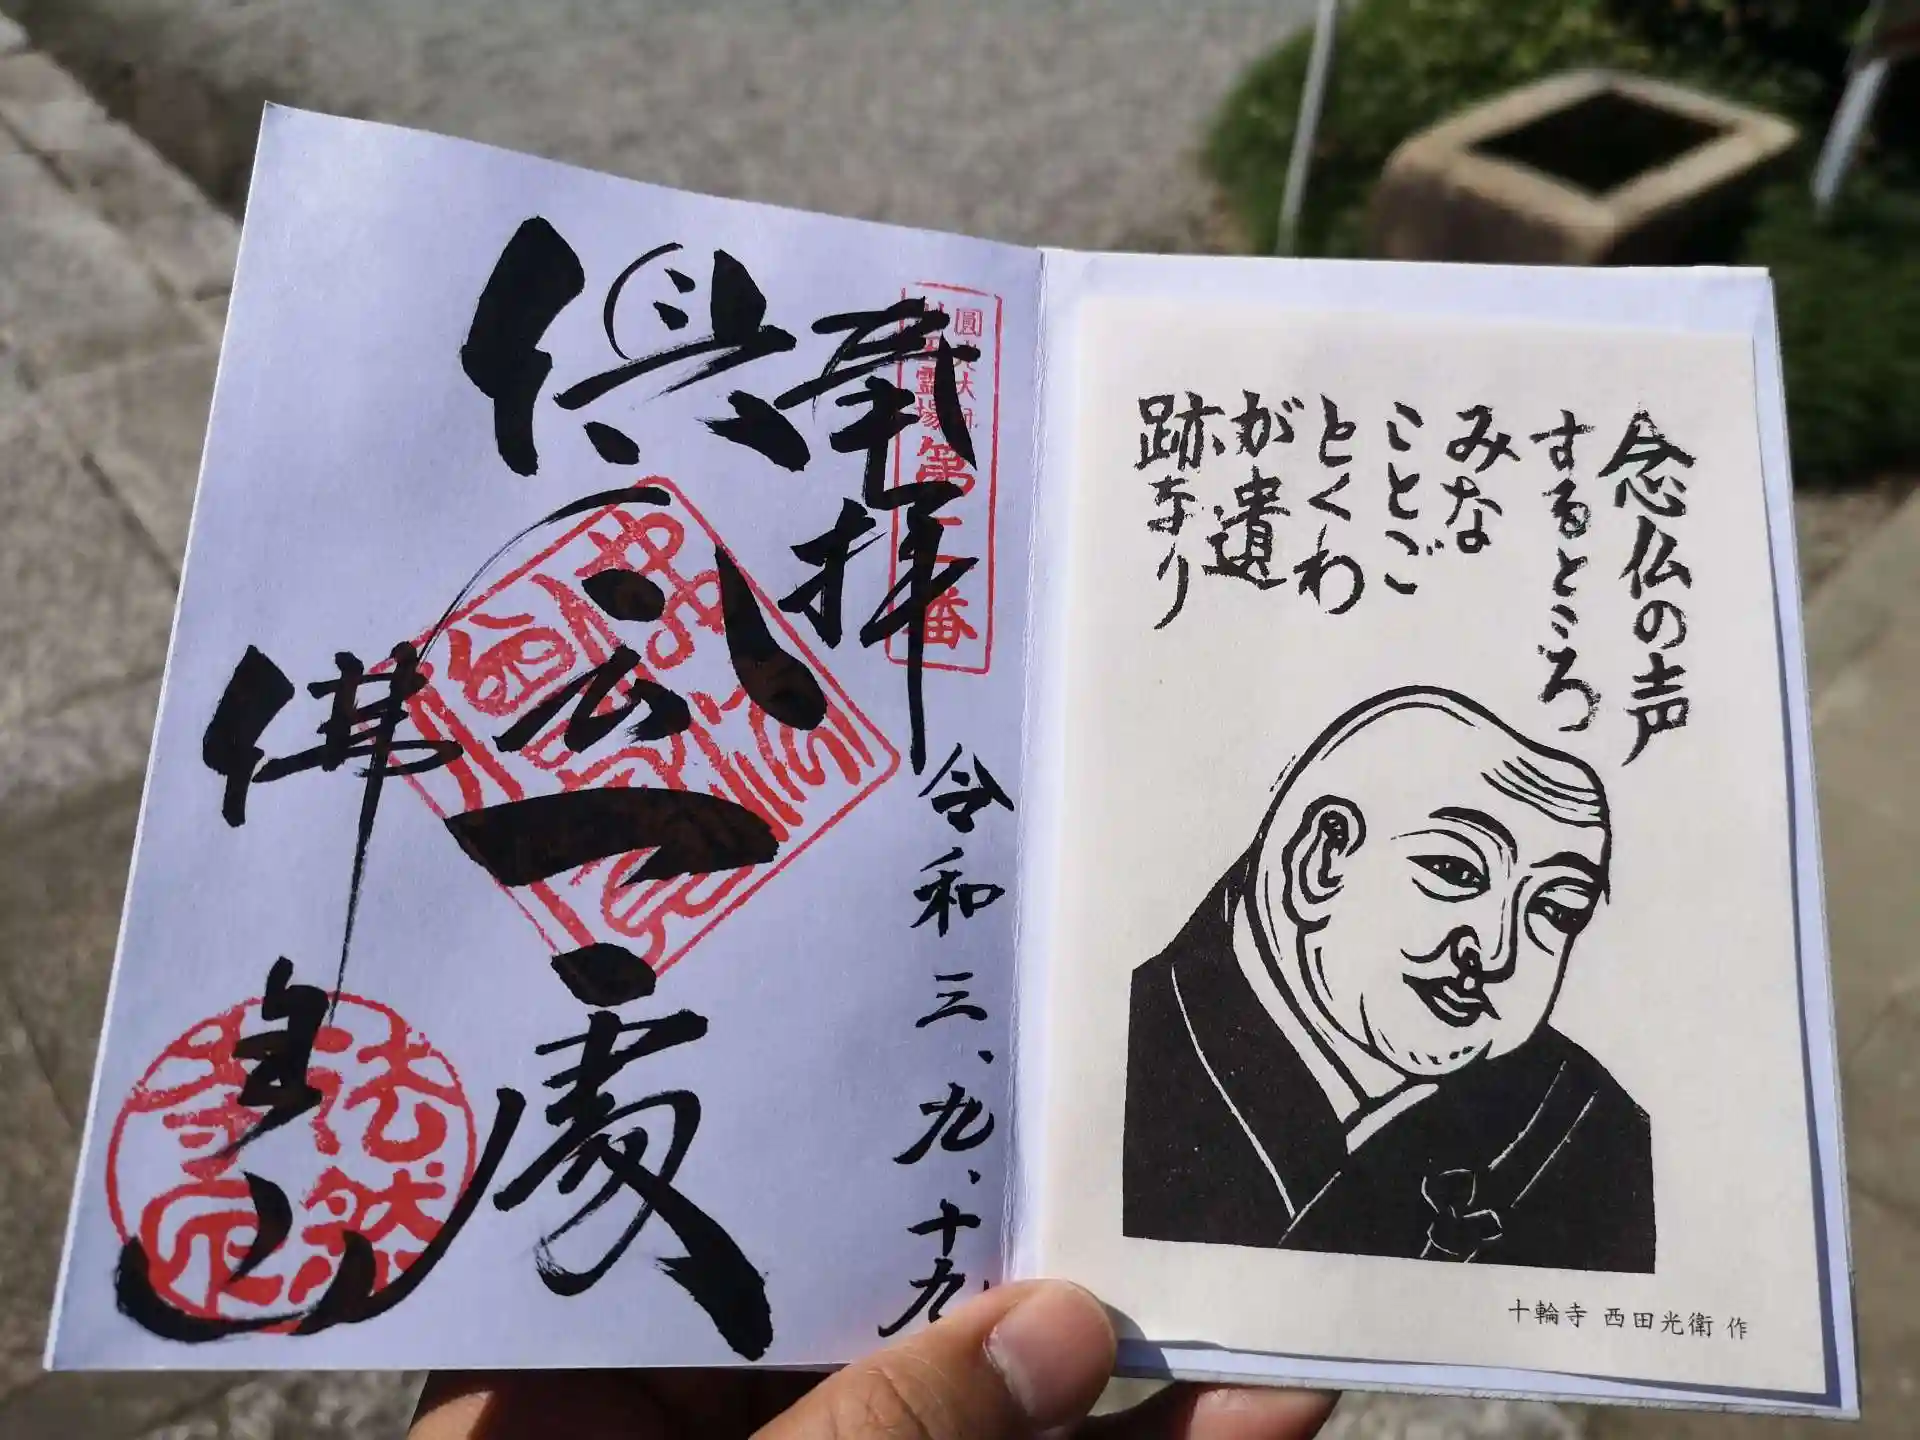 念仏の声
するところ
みな
ことご
とくわ
が遺
跡なり
十輪寺 西田光衛 作
圓光大師
霊場第二番
奉拝
令和三、九、十九
倶会一處
佛生山
法然
寺印